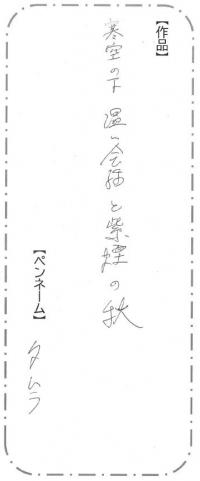 【作品】
寒空の下 温い会話と紫煙の秋
【ペンネーム】
タムラ